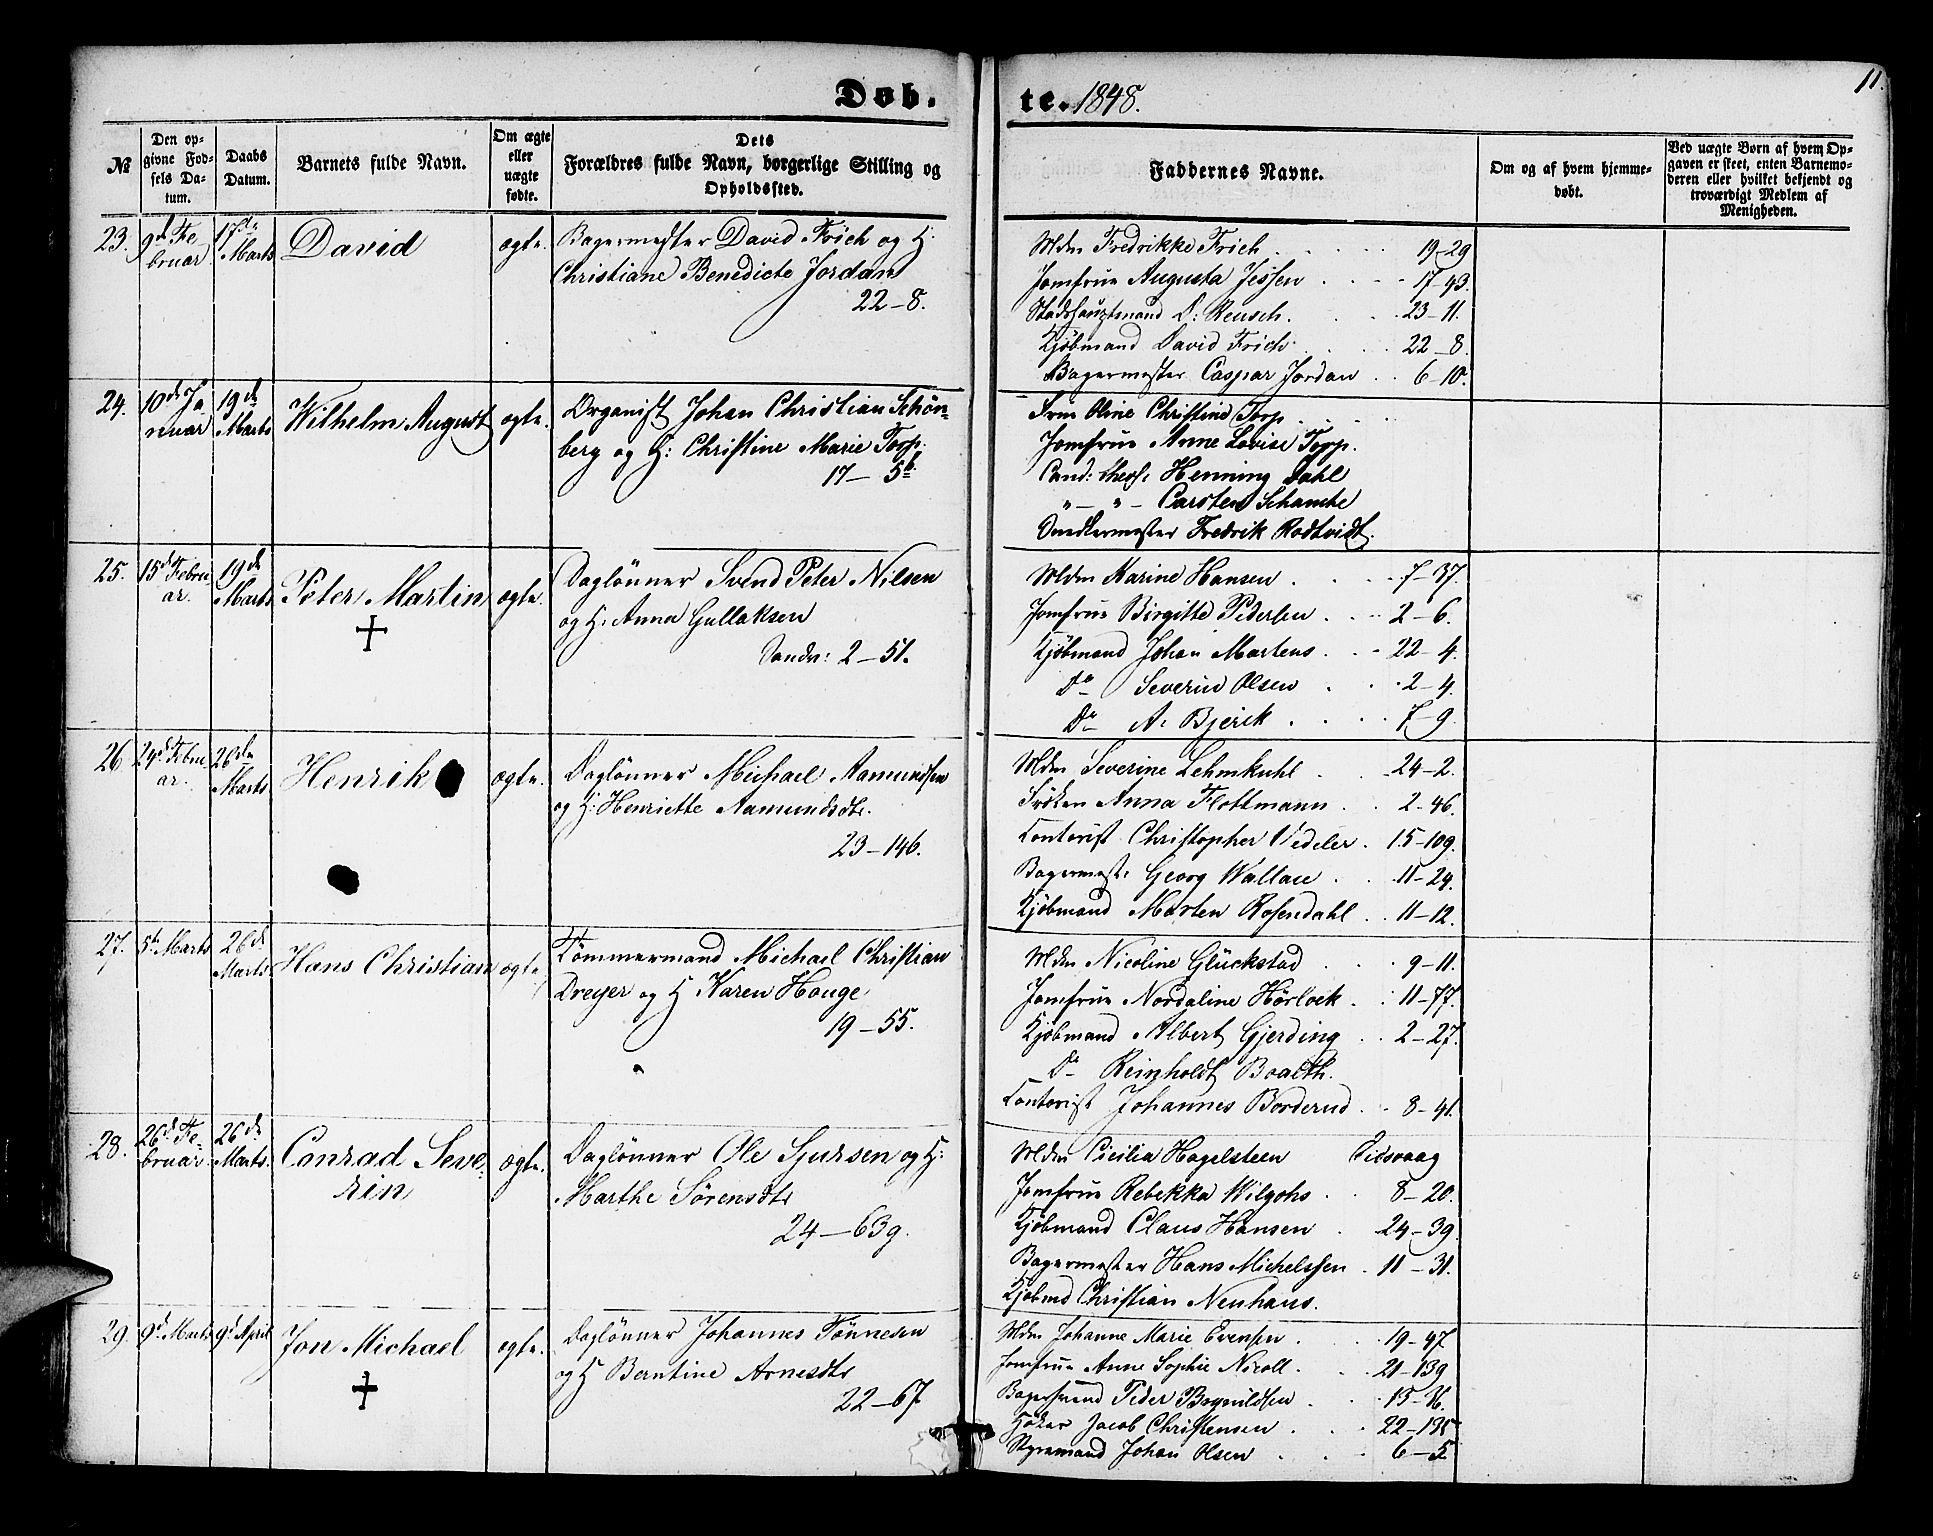 Døb.
te. 1848.
11.
№
Den op-
givne Fød-
sels Da-
tum.
Daabs
Datum.
Barnets fulde Navn.
Om ægte
eller
uægte
fødte.
Dets
Forældres fulde Navn, borgerlige Stilling og
Opholdssted.
Faddernes Navne.
Om og af hvem hjemme-
døbt.
Ved uægte Børn af hvem Op-
gaven er skeet, enten Barnemo-
deren eller hvilket bekjendt og
troværdigt Medlem af
Menigheden.
23. 9de Fe
bruar
17de
Marts
David
ægte.
Bagermester David Frich og H:
Christiane Benedicte Jordan
22-8.
Mdm Fredrikke Frich 19-29
Jomfrue Augusta Jessen 17-43.
Stadshauptmand D: Reusch. 23-11.
Kjöbmand David Frich 22-8.
Bagermester Caspar Jordan 6-10.
24. 10de Ja
nuar
19de
Marts
Wilhelm August
ægte.
Organist Johan Christian Schön-
berg og H: Christine Marie Torp.
17-5b
Frue Oline Christine Torp
Jomfrue Anne Lovise Torp.
Cand: theol: Henning Dahl
"-"- Carsten Schancke
Snedkermester Fredrik Rodtvidt.
25. 15de Febru
ar.
19de
Marts
Peter Martin
ægte.
Daglönner Svend Peter Nilsen
og H: Anna Gullaksen
Sandv: 2-51.
Mdm Karine Hansen 7-37.
Jomfrue Birgitte Pedersen 2-6.
Kjöbmand Johan Martens 22-4.
Do Severin Olsen 2-4.
Do A. Bjerck 7-9.
26. 24de Febru
ar.
26de
Marts
Henrik
ægte.
Daglönner Michael Aamundsen
og H: Henriette Aamundsdtr.
23-146.
Mdm Severine Lehmkuhl 24-2.
Fröken Anna Flottmann 2-46.
Contorist Christopher Vedeler 15-109.
Bagermest: Georg Wallau 11-24.
Kjöbmand Morten Rosendahl 11-12.
27. 5te Marts
26de
Marts
Hans Christian
ægte.
Tömmermand Michael Christian
Dreyer og H Karen Houge
19-55.
Mdm Nicoline Glückstad 9-11.
Jomfrue Nordaline Hörlock 11-77.
Kjöbmand Albert Gjerding 2-27.
Do Reinholdt Boalth.
Contorist Johannes Borderud 8-41.
28. 26de Fe-
bruar
26de
Marts.
Conrad Seve-
rin
ægte.
Daglönner Ole Sjursen og H:
Marthe Sörensdtr
24-639.
Mdm Cicilia Hagelsteen Eidsvaag
Jomfrue Rebekka Wilgohs 8-20.
Kjöbmand Claus Hansen 24-39.
Bagermester Hans Michelssen 11-31.
Kjöbmd Christian Neuhaus.
29. 9de Marts
9de April
Jon Michael
ægte.
Daglönner Johannes Tönnesen
og H Berntine Arnesdtr
22-67.
Mdm Johanne Marie Evensen 19-47
Jomfrue Anne Sophie Nicoll 21-139
Bagersvend Peder Bognildsen 15-36.
Höker Jacob Christensen 22-135
Styrmand Johan Olsen 6-5